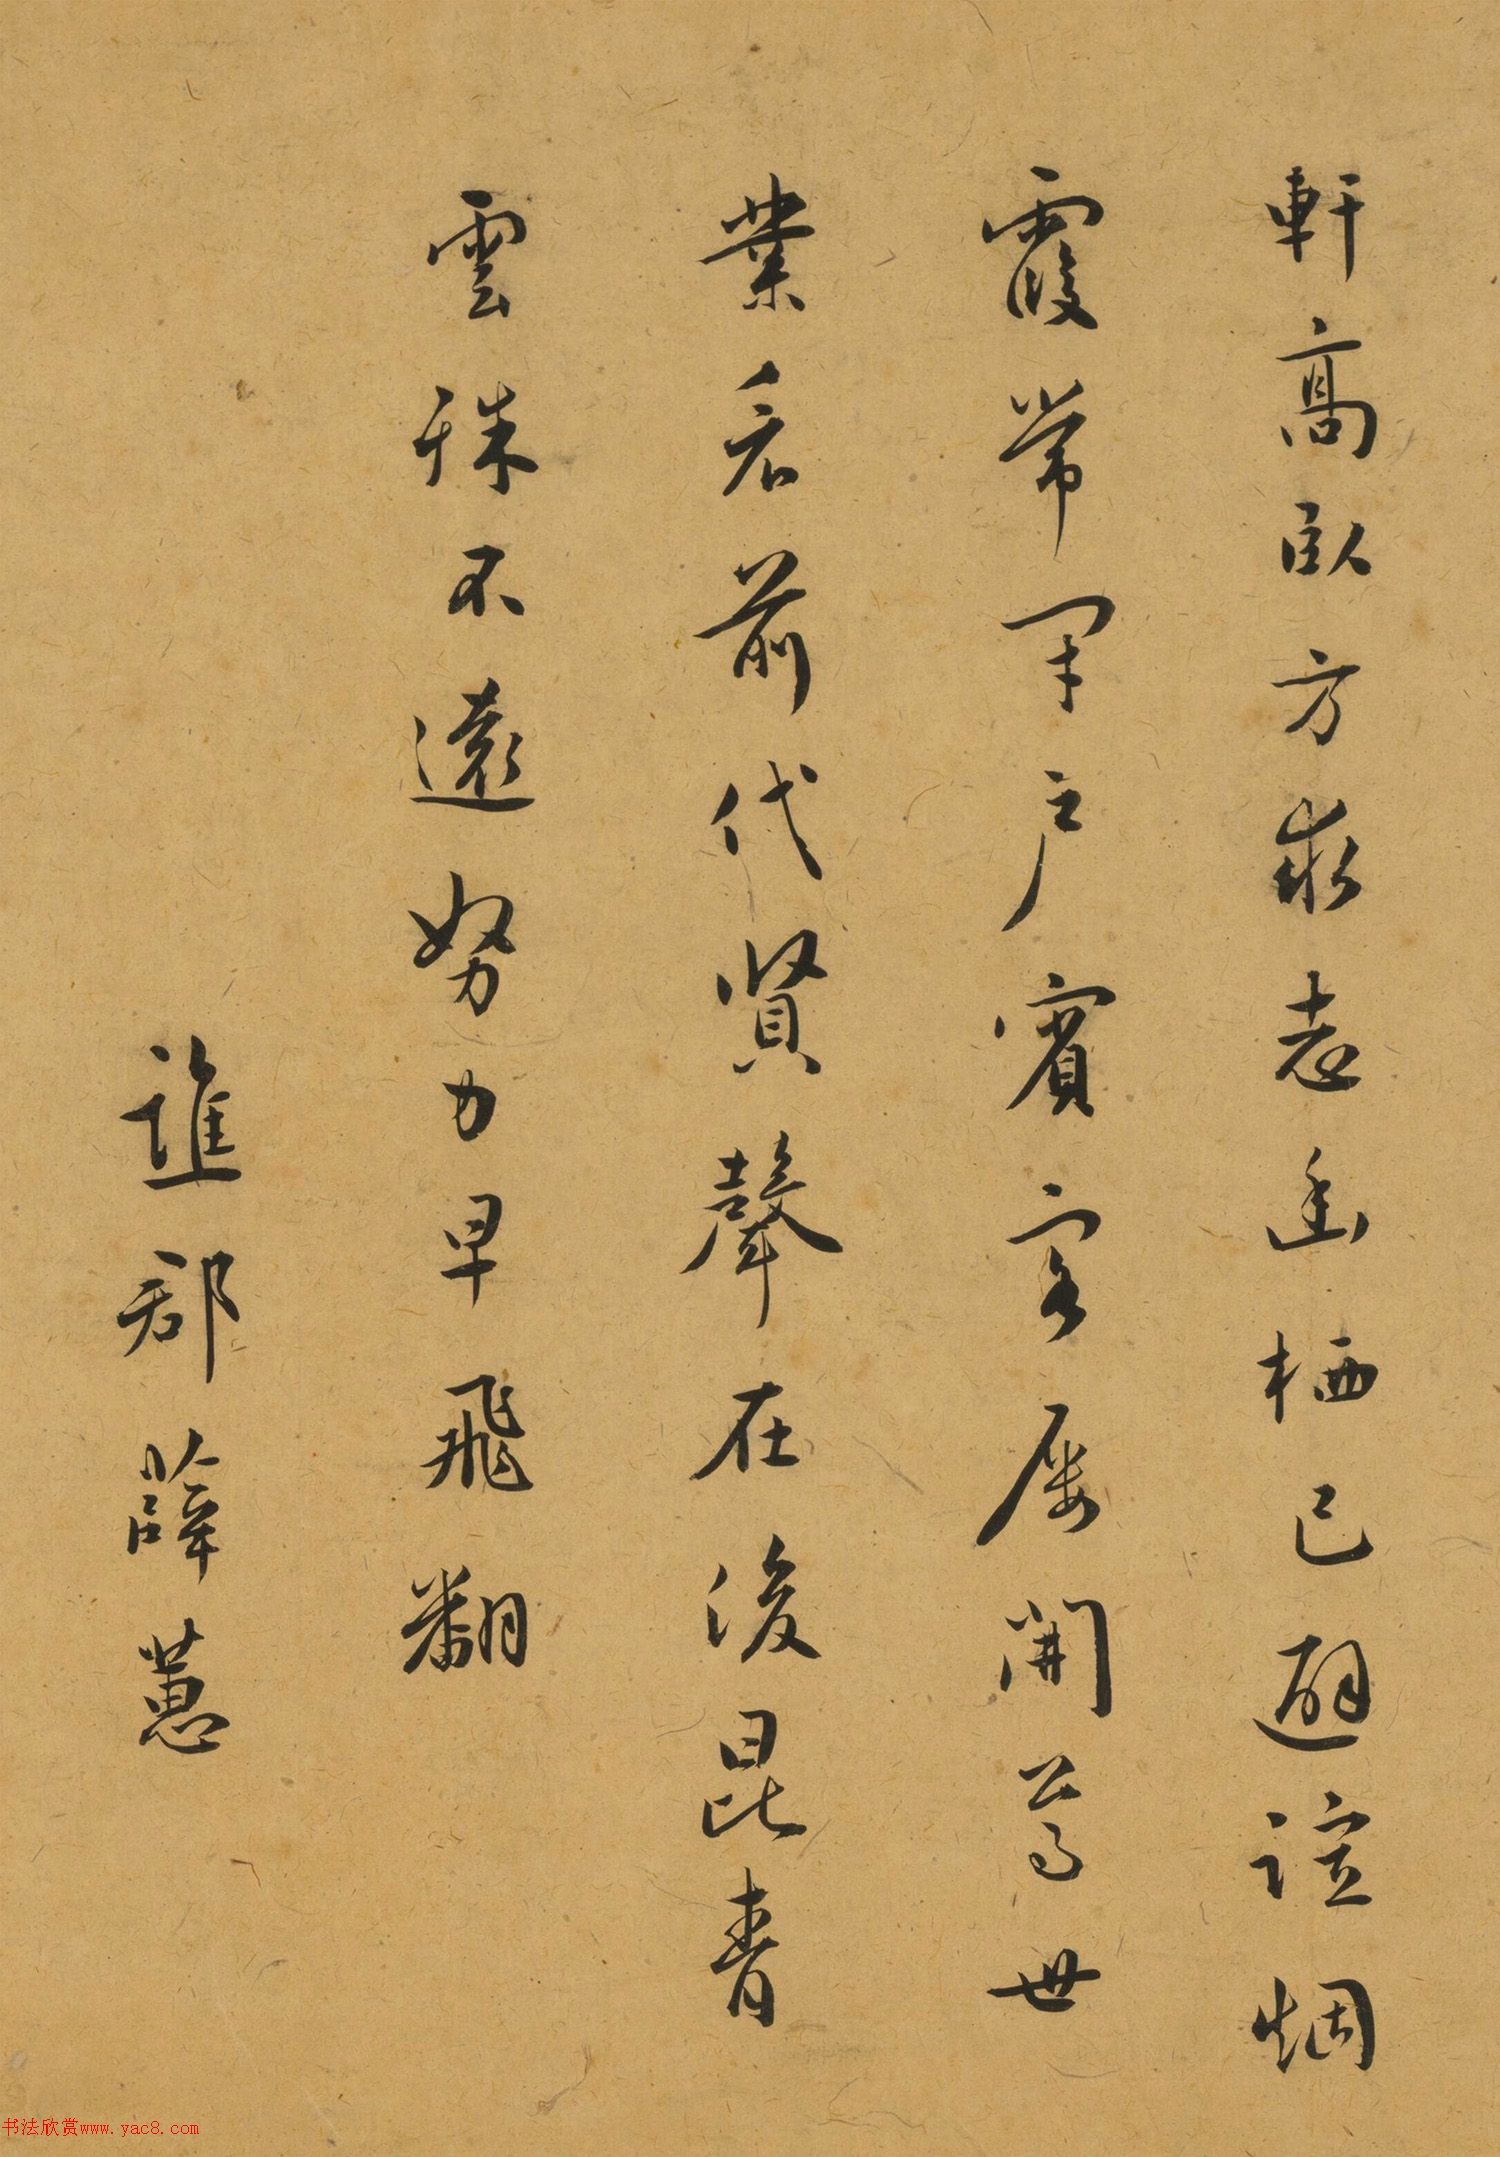 軒高臥方求志幽栖已避諠烟
霞常罕戶賓客屢開尊世
業看前代賢聲在後昆青
雲殊不遠努力早飛翻
譙郡薛蕙
书法欣赏www.yac8.com